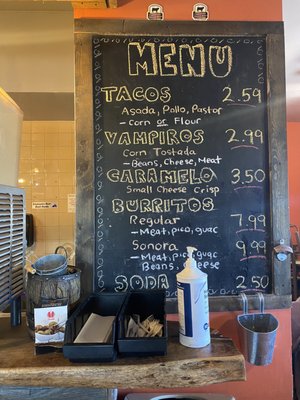 MENU
TACOS 2.59
Asada, Pollo, Pastor
- Corn or Flour
VAMPIROS 2.99
Corn Tostada
- Beans, Cheese, Meat
CARAMELO 3.50
Small Cheese Crisp
BURRITOS
Regular 7.99
- Meat, pico, guac
Sonora 9.99
- Meat, pico, guac
Beans, Cheese
SODA 2.50